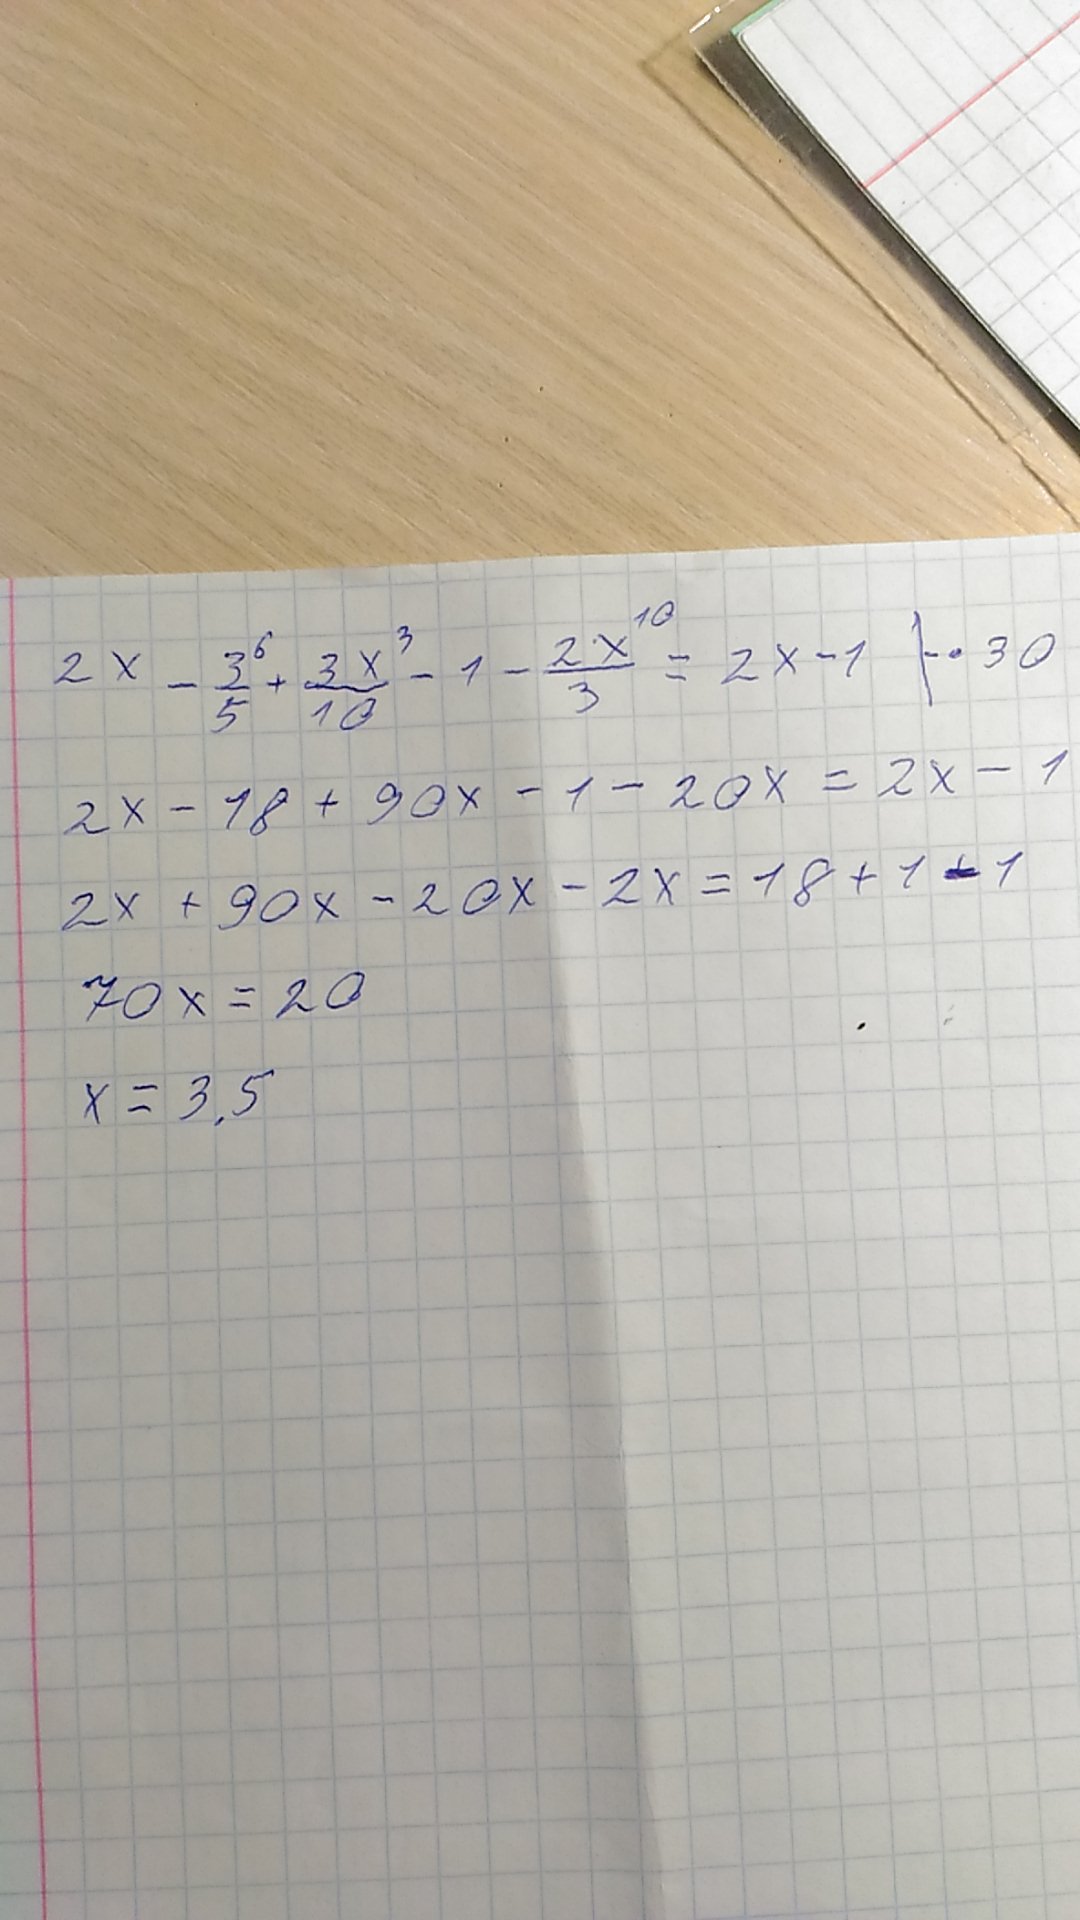 2x - 3/5^6 + 3x/10^3 - 1 - 2x/3^10 = 2x - 1 | · 30
2x - 18 + 90x - 1 - 20x = 2x - 1
2x + 90x - 20x - 2x = 18 + 1 - 1
70x = 20
x = 3,5